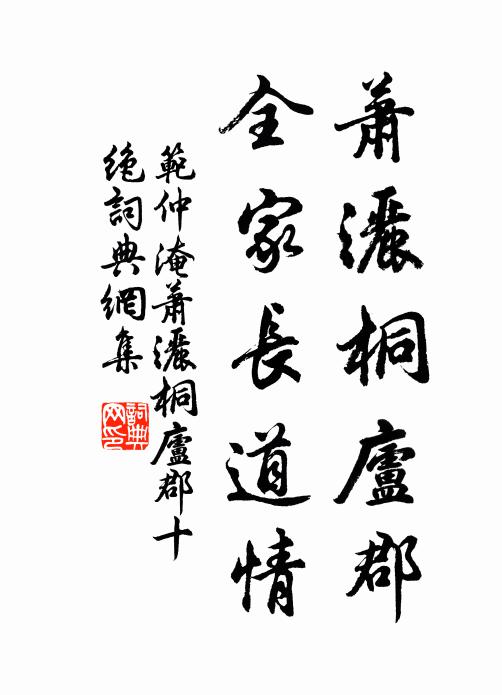 蕭灑桐廬郡
全家長道情
範仲淹蕭灑桐廬郡十
絶詞典網集
詞典網印